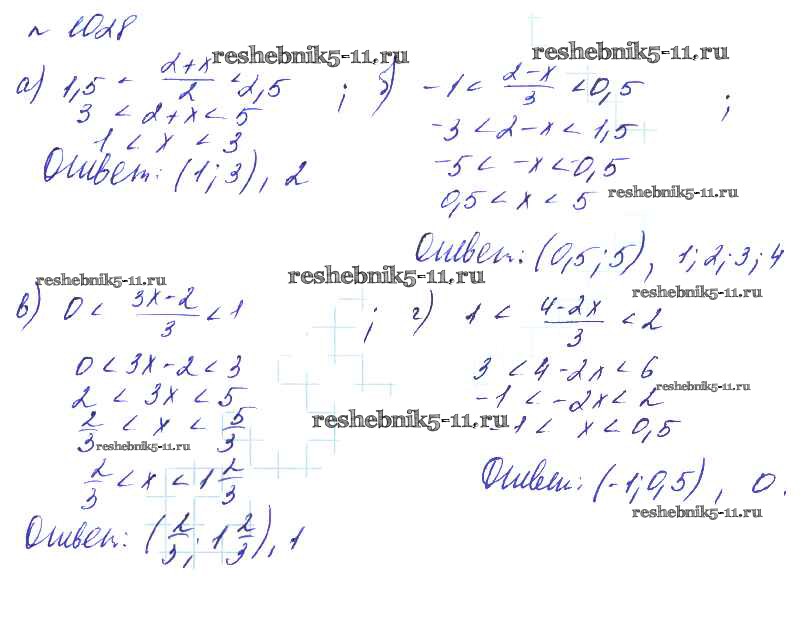 № 1028
reshebnik5-11.ru
reshebnik5-11.ru
а) 1,5 < (2+x)/2 < 2,5 ;
3 < 2+x < 5
1 < x < 3
Ответ: (1; 3), 2
б) -1 < (2-x)/3 < 0,5 ;
-3 < 2-x < 1,5
-5 < -x < -0,5
0,5 < x < 5
reshebnik5-11.ru
Ответ: (0,5; 5), 1; 2; 3; 4
reshebnik5-11.ru
reshebnik5-11.ru
reshebnik5-11.ru
в) 0 < (3x-2)/3 < 1 ;
0 < 3x-2 < 3
2 < 3x < 5
2/3 < x < 5/3
reshebnik5-11.ru
2/3 < x < 1 2/3
Ответ: (2/3; 1 2/3), 1
г) 1 < (4-2x)/3 < 2
3 < 4-2x < 6
reshebnik5-11.ru
-1 < -2x < 2
reshebnik5-11.ru
-1 < x < 0,5
Ответ: (-1; 0,5), 0.
reshebnik5-11.ru